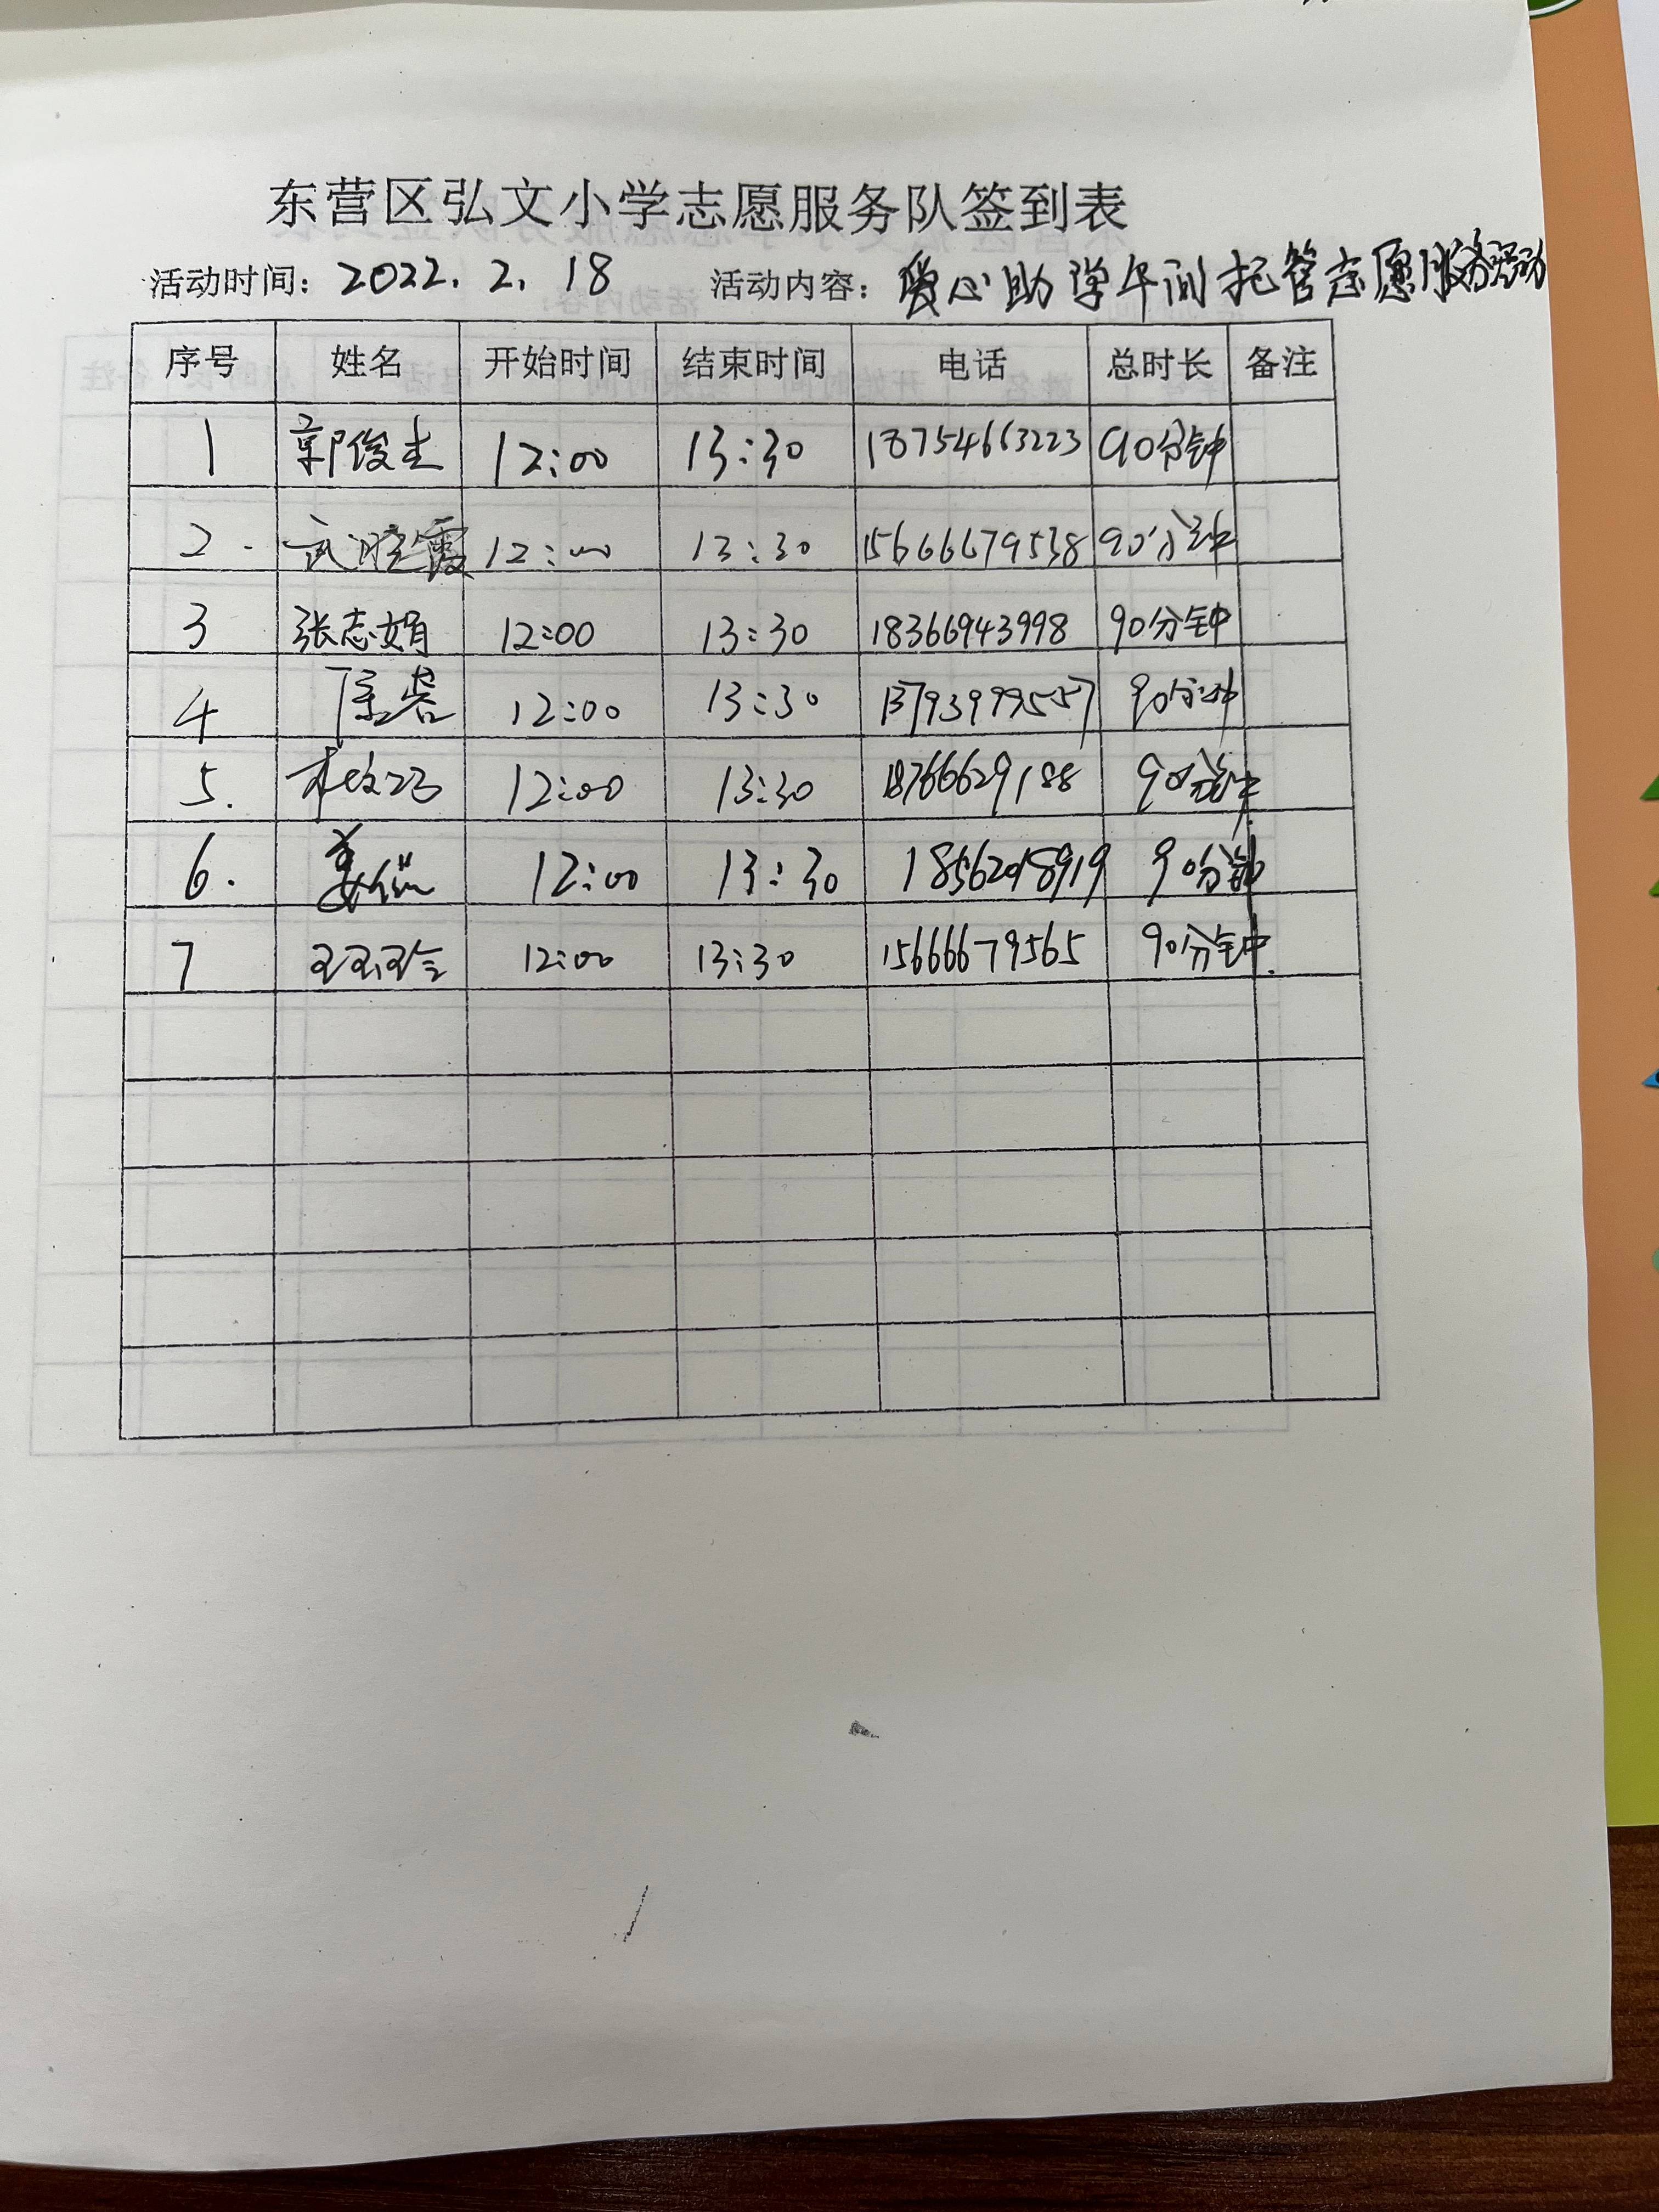 东营区弘文小学志愿服务队签到表
活动时间：2022.2.18 活动内容：爱心助学午间托管志愿服务活动
序号 姓名 开始时间 结束时间 电话 总时长 备注
1 郭俊杰 12:00 13:30 18754663223 90分钟
2. 武晓霞 12:00 13:30 15666679538 90分钟
3 张志娟 12:00 13:30 18366943998 90分钟
4 12:00 13:30 13793999557 90分钟
5. 12:00 13:30 18766629188 90分钟
6. 姜 12:00 13:30 18562018919 90分钟
7 王玉玲 12:00 13:30 15666679565 90分钟.